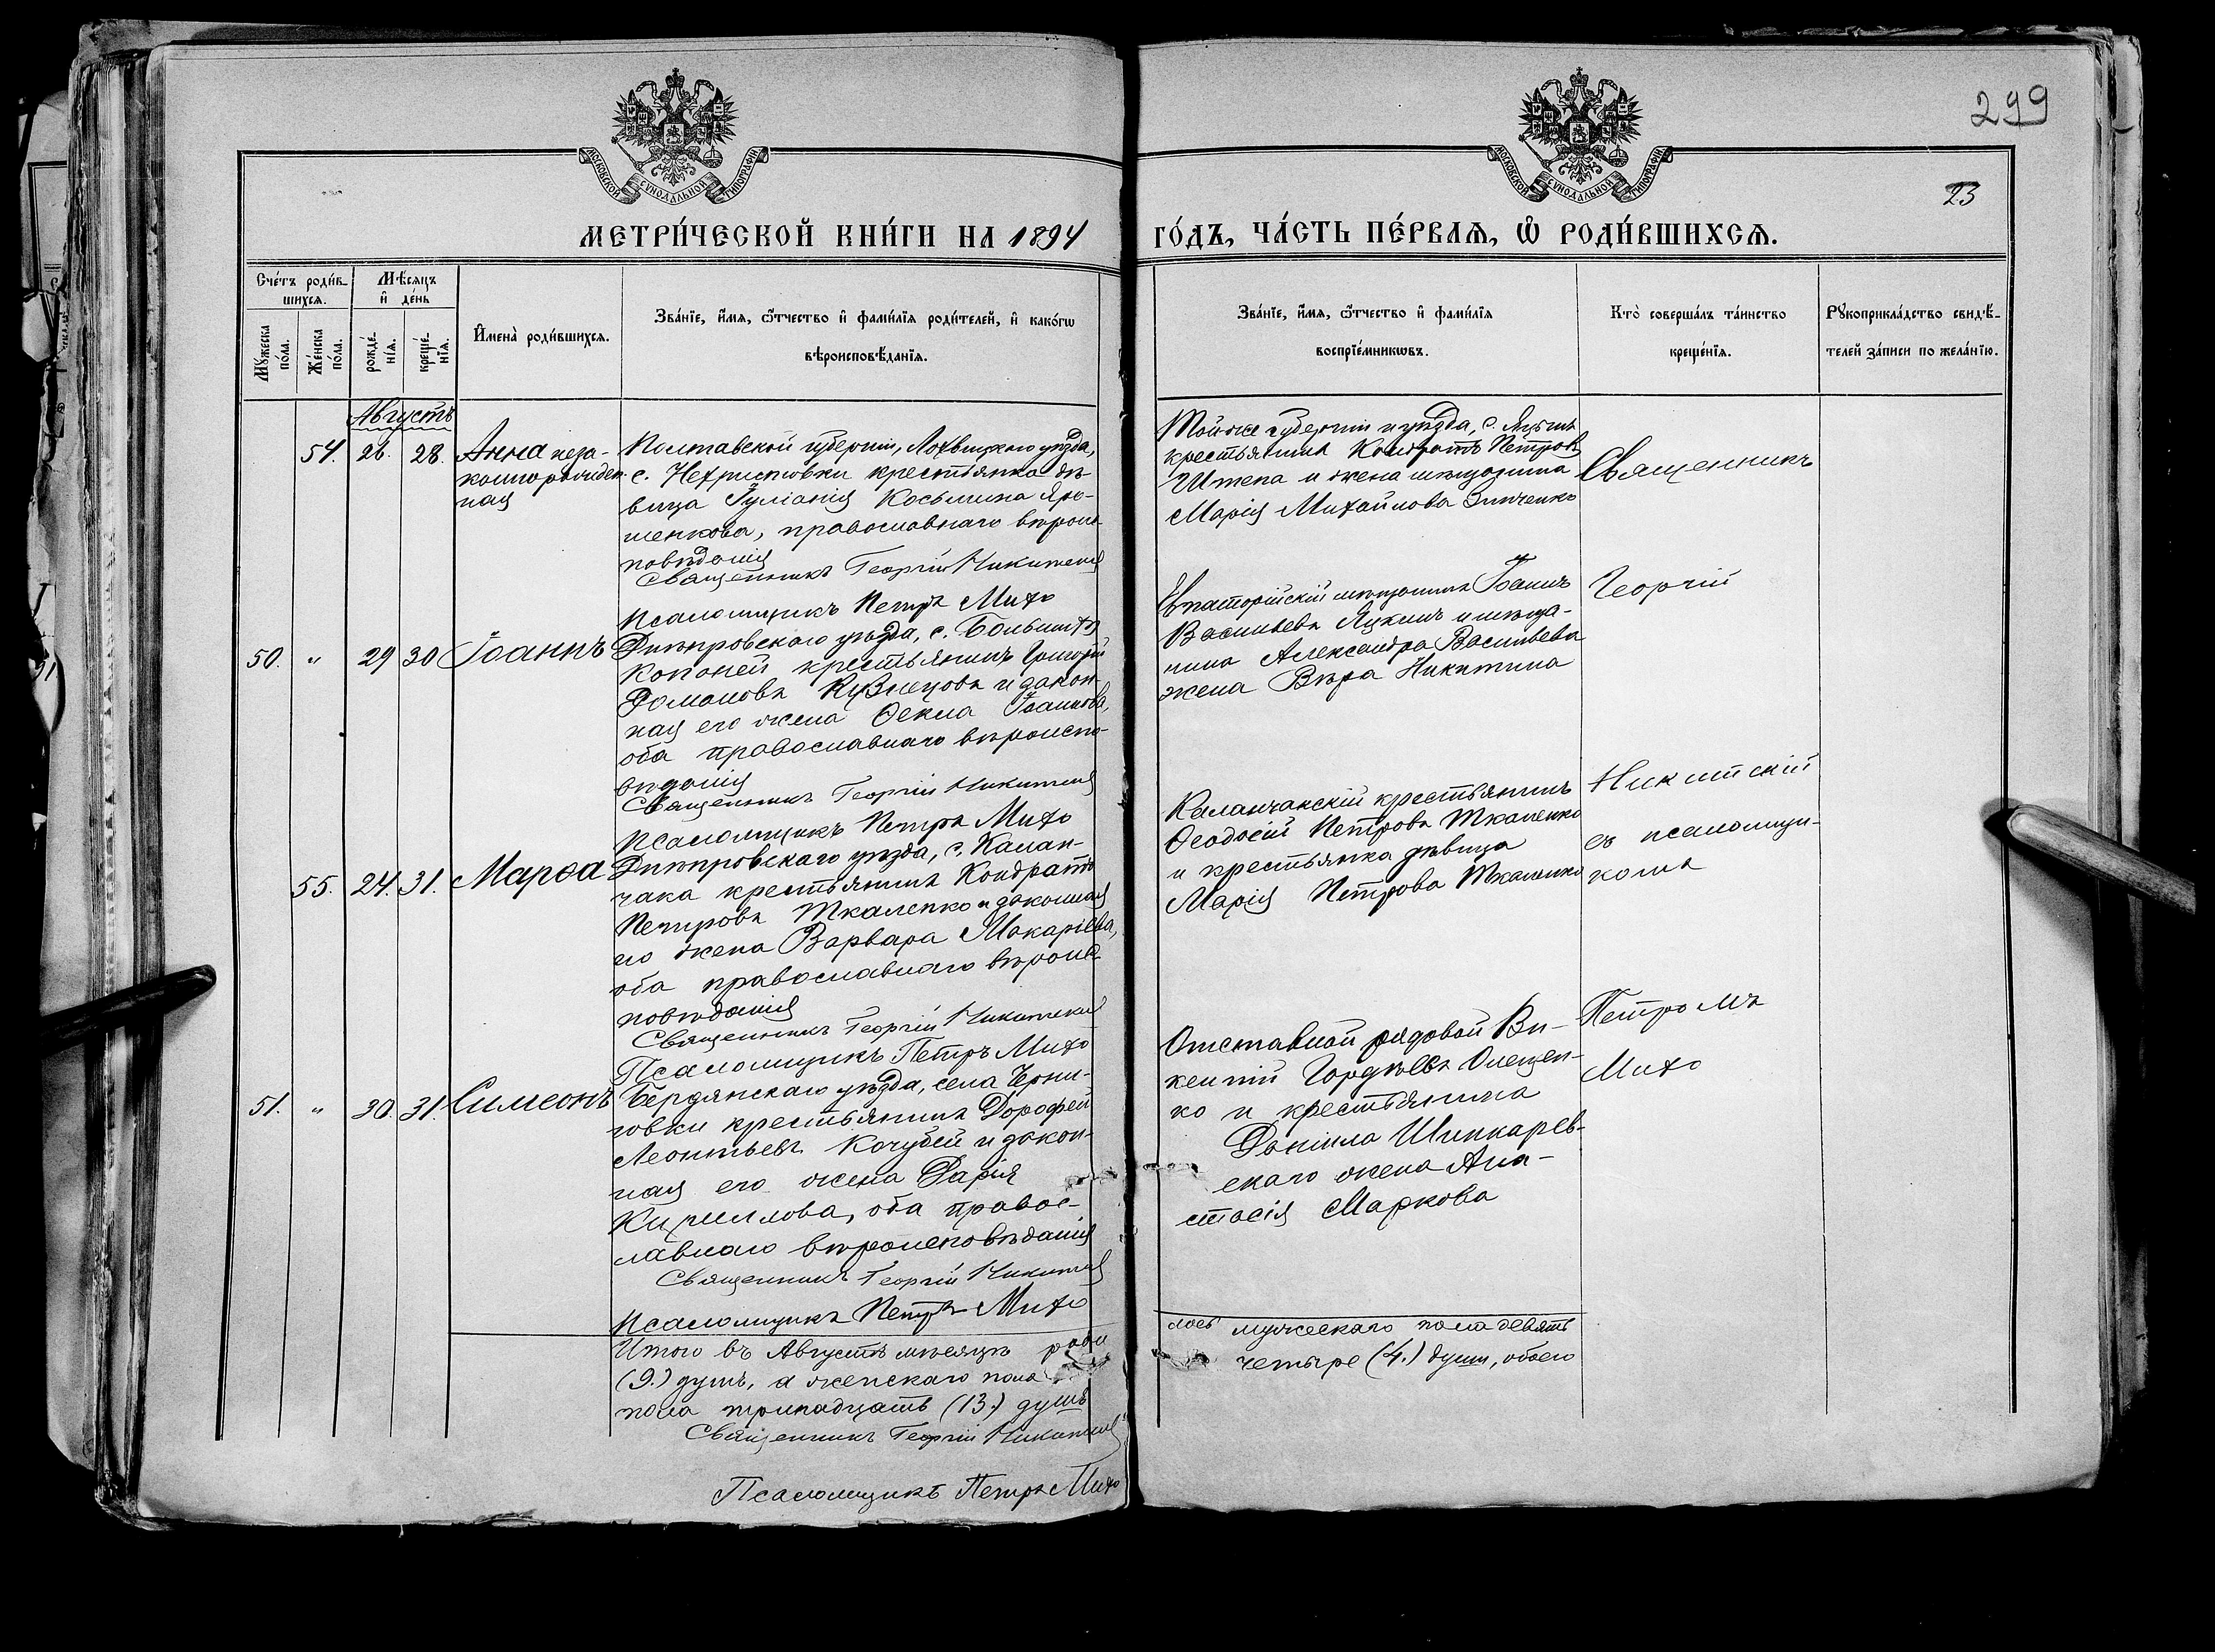 299
23
МОСКОВСКОЙ СѴНОДАЛЬНОЙ ТИПОГРАФІИ
МОСКОВСКОЙ СѴНОДАЛЬНОЙ ТИПОГРАФІИ
МЕТРИ́ЧЕСКОЙ КНИ́ГИ НА 1894
ГО́ДЪ, ЧА́СТЬ ПЕ́РВАѦ, Ѡ҆ РОДИ́ВШИХСѦ.
Сче́тъ роди́в-
шихсѧ.
Мѹ́жеска
по́ла.
Же́нска
по́ла.
Мѣ́сѧцъ
и҆ де́нь
рожде́-
нїѧ.
креще́-
нїѧ.
И҆мена̀ роди́вшихсѧ.
Зва́нїе, и҆́мѧ, ѻ҆́тчество и҆ фами́лїѧ роди́телей, и҆ како́гѡ
вѣроисповѣ́данїѧ.
Зва́нїе, и҆́мѧ, ѻ҆́тчество и҆ фами́лїѧ
воспрїе́мникѡвъ.
Кто̀ соверша́лъ та́инство
креще́нїѧ.
Рѹкоприкла́дство свидѣ́-
телей за́писи по жела́нїю.
Августъ
54. 26. 28. Анна неза-
коннорожден
ная
Полтавской губерніи, Лохвицкаго уѣзда,
с. Нехристовки крестьянка дѣ-
вица Іуліанія Косьмина Яро-
шенкова, православнаго вѣроис
повѣданія
Священникъ Георгій Никитскій
Псаломщикъ Петръ Михо
Тойже губерніи и уѣзда, с.
крестьянинъ Кондратъ Петровъ
Штепа и жена мѣщанина
Марія Михайлова Зинченко
50. " 29 30 Іоаннъ
Днѣпровскаго уѣзда, с. Большихъ
Копаней крестьянинъ Григорій
Романовъ Кузнецовъ и закон
ная его жена Ѳекла Іоаннова,
оба православнаго вѣроиспо-
вѣданія
Священникъ Георгій Никитскій
Псаломщикъ Петръ Михо
Евпаторійскій мѣщанинъ Іоаннъ
Васильевъ Яцкинъ и мѣща-
нина Александра Васильева
жена Вѣра Никитина
55. 24. 31. Марѳа
Днѣпровскаго уѣзда, с. Калан-
чака крестьянинъ Кондратъ
Петровъ Ткаленко и законная
его жена Варвара Макаріева,
оба православнаго вѣроис
повѣданія
Священникъ Георгій Никитскій
Псаломщикъ Петръ Михо
Каланчакскій крестьянинъ
Ѳеодосій Петровъ Ткаленко
и крестьянка дѣвица
Марія Петрова Ткаленко
51. " 30. 31. Симеонъ
Бердянскаго уѣзда, села Черни-
говки крестьянинъ Дорофей
Леонтьевъ Кочубей и закон-
ная его жена Дарія
Кириллова, оба правос-
лавнаго вѣроисповѣданія
Священникъ Георгій Никитскій
Псаломщикъ Петръ Михо
Отставной рядовой Ви-
кентій Гордѣевъ Олещен-
ко и крестьянина
Даніила Шинкарев-
скаго жена Ана-
стасія Маркова
Священникъ
Георгій
Никитскій
съ псаломщи-
комъ
Петромъ
Михо
Итого въ Августѣ мѣсяцѣ роди
лось мужескаго пола девять
(9.) душъ, а женскаго пола
четыре (4.) души, обоего
пола тринадцать (13.) душъ
Священникъ Георгій Никитскій
Псаломщикъ Петръ Михо